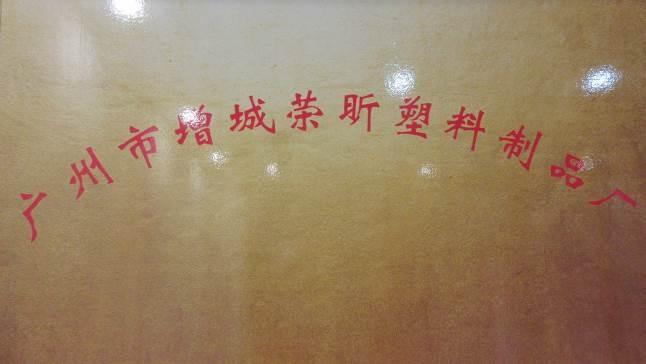 广州市增城荣昕塑料制品厂